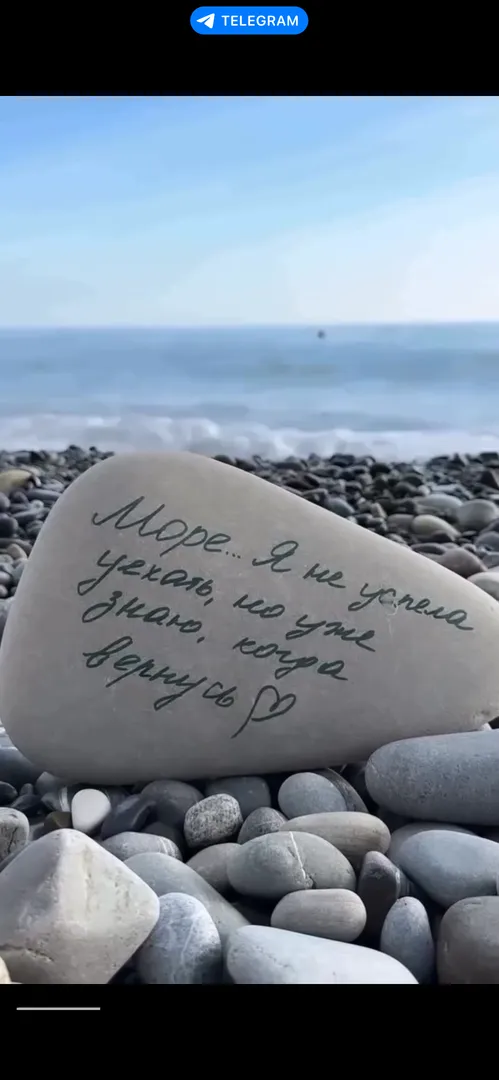 TELEGRAM
Море... Я не успела
уехать, но уже
знаю, когда
вернусь